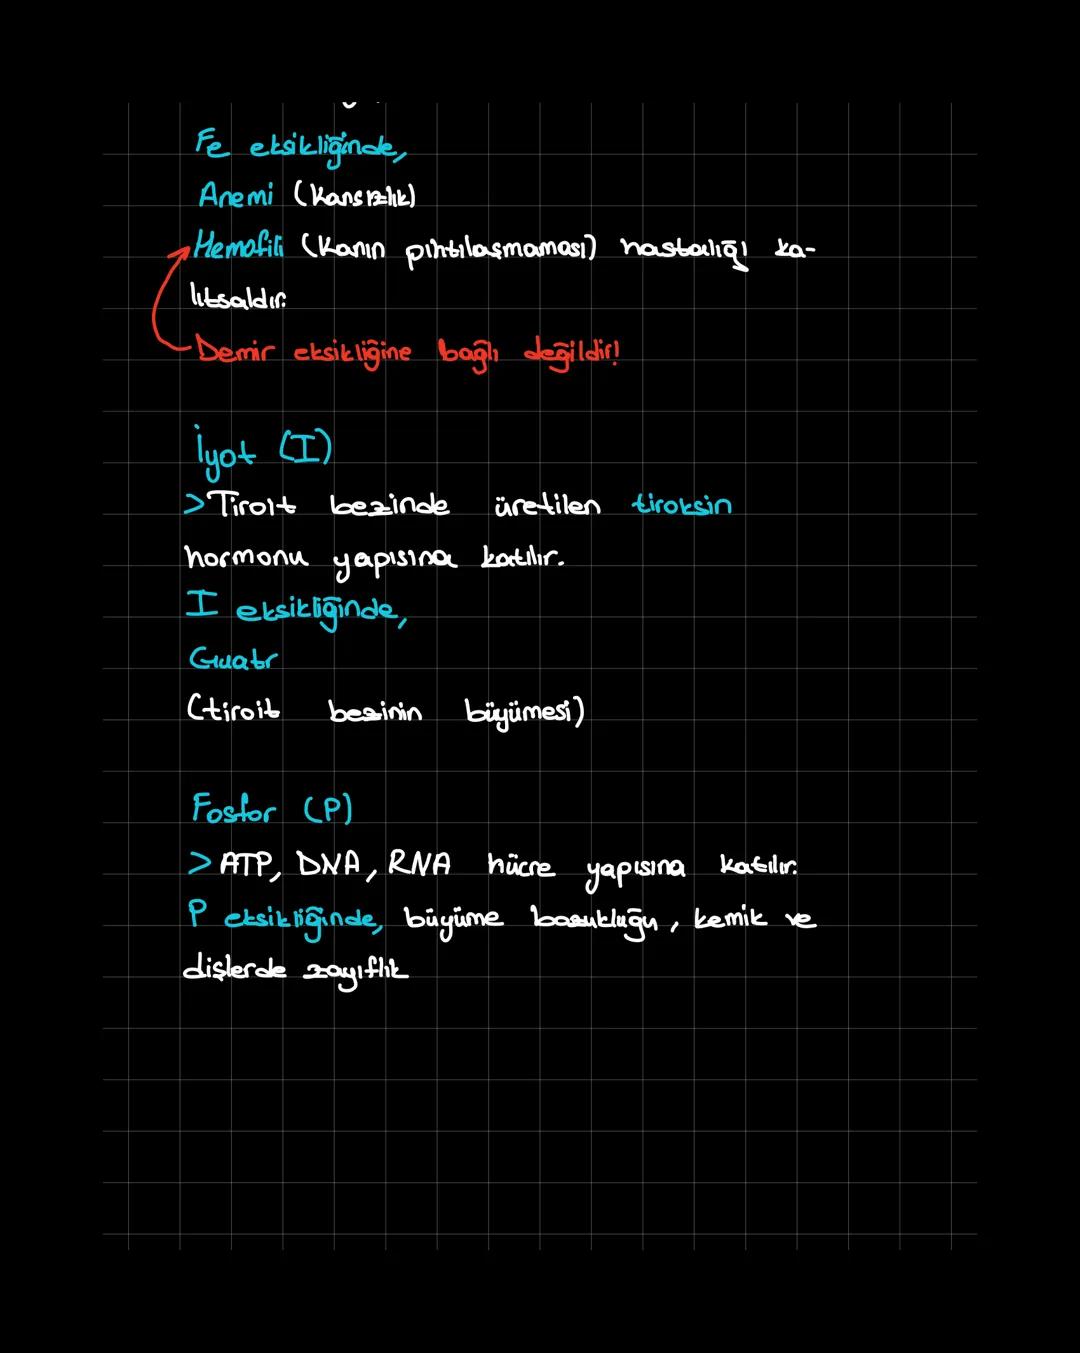 Fe eksikliğinde,
Anemi (Kansızlık)
Hemofili (Kanın pıhtılaşmaması) hastalığı ka-
lıtsaldır.
Demir eksikliğine bağlı değildir!
İyot (I)
>Tiroit bezinde üretilen tiroksin
hormonu yapısına katılır.
I eksikliğinde,
Guatr
(tiroit bezinin büyümesi)
Fosfor (P)
>ATP, DNA, RNA hücre yapısına katılır.
P eksikliğinde, büyüme bozukluğu, kemik ve
dişlerde zayıflık